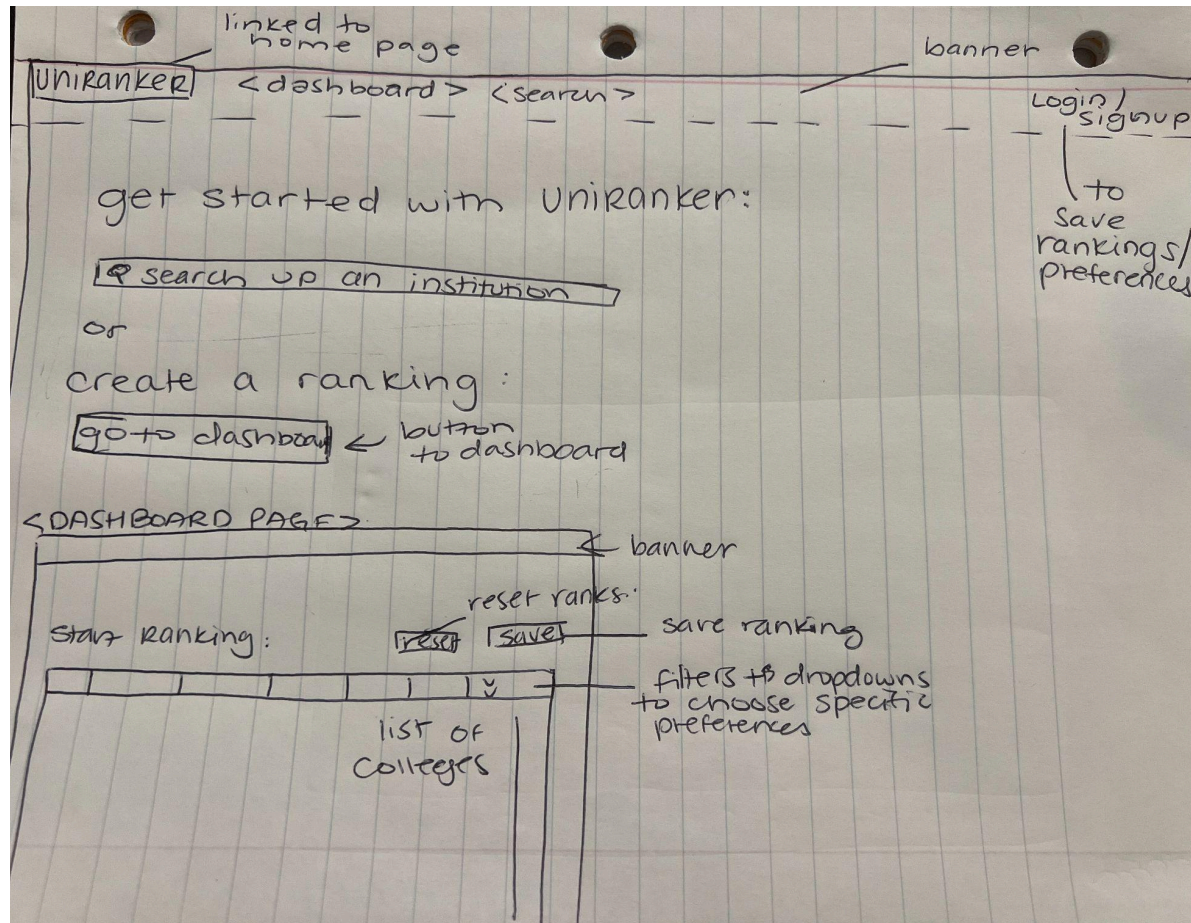 linked to
home page
banner
UNIRANKER <dashboard> <search>
Login/
signup
get started with UniRanker:
to
save
rankings/
preferences
search up an institution
or
create a ranking:
go to dashboad
button
to dashboard
<DASHBOARD PAGE>
banner
reset ranks:
Start Ranking:
reset
save
save ranking
filters + dropdowns
to choose specific
preferences
list of
colleges